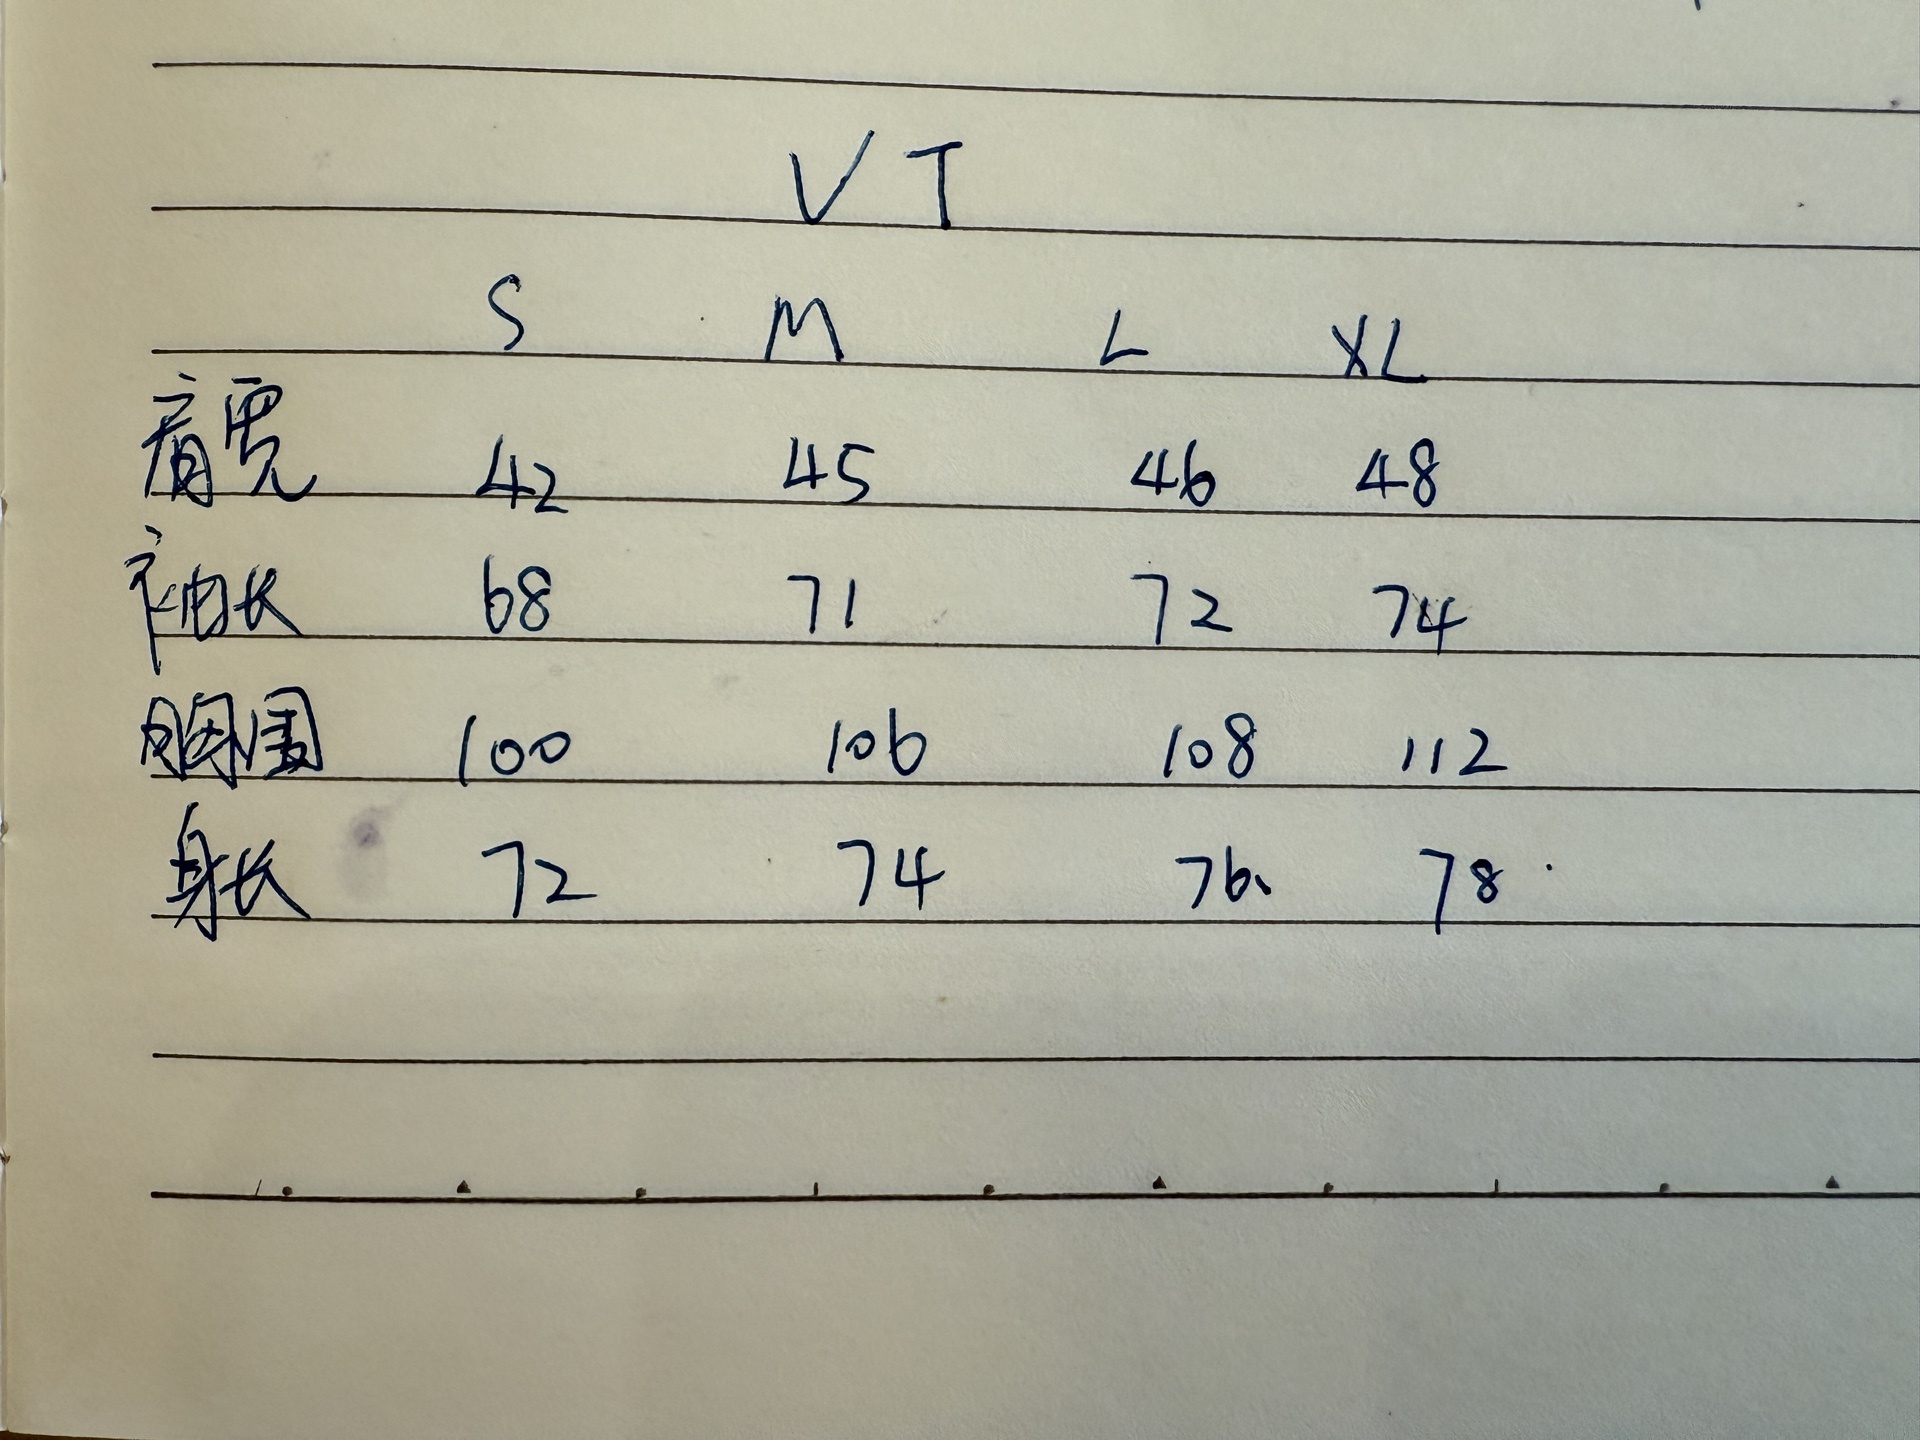 VT
S M L XL
肩宽 42 45 46 48
袖长 68 71 72 74
胸围 100 106 108 112
身长 72 74 76 78